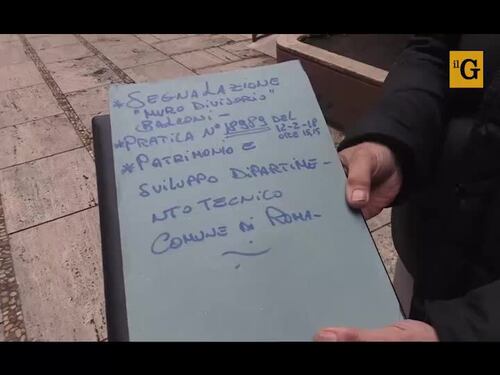 il G
*SEGNALAZIONE
"MURO DIVISORIO"
BALCONI -
*PRATICA N° 18989 DEL 12-2-18 ORE 15,15
*PATRIMONIO E
SVILUPPO DIPARTIME-
NTO TECNICO
COMUNE DI ROMA-